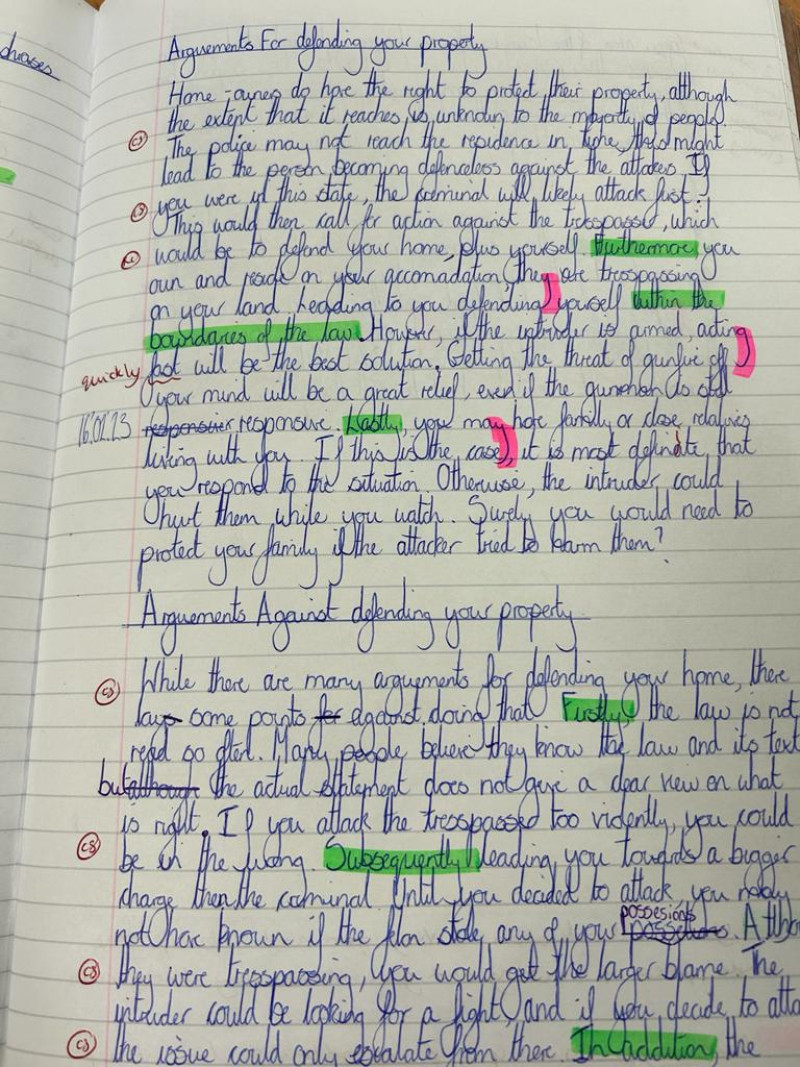 chrases
Arguements For defending your property
Home-owners do have the right to protect their property, although
the extent that it reaches is unknown to the majority of people.
cs The police may not reach the residence in time, this might
lead to the person becoming defenceless against the attakers. If
cs you were in this state, the criminal will likely attack first?
This would then call for action against the trespasser, which
cs would be to defend your home, plus yourself. Furthermore you
own and reside on your accomadation, they are trespassing
on your land leading to you defending, yourself within the
boundaries of the law. However, if the intruder is armed, acting
quickly fast will be the best solution. Getting the threat of gunfire off
your mind will be a great relief, even if the gunman is still
16.01.23 responsive. Lastly, you may have family or close relatives
living with you. If this is the case, it is most definate that
you respond to the situation. Otherwise, the intruder could
hurt them while you watch. Surely you would need to
protect your family if the attacker tried to harm them?
Arguements Against defending your property
cs While there are many arguements for defending your home, there
lays some points for against doing that. Firstly, the law is not
read so often. Many people believe they know the law and its text
but although the actual statement does not give a clear view on what
is right. If you attack the tresspasser too violently, you could
cs be in the wrong. Subsequently leading you towards a bigger
charge then the criminal. Until you decided to attack, you
not have known if the felon stole any of your possesions. Altho
cs they were trespassing, you would get the larger blame. The
intruder could be looking for a fight, and if you decide to atta
cs the issue could only escalate from there. In addition, the